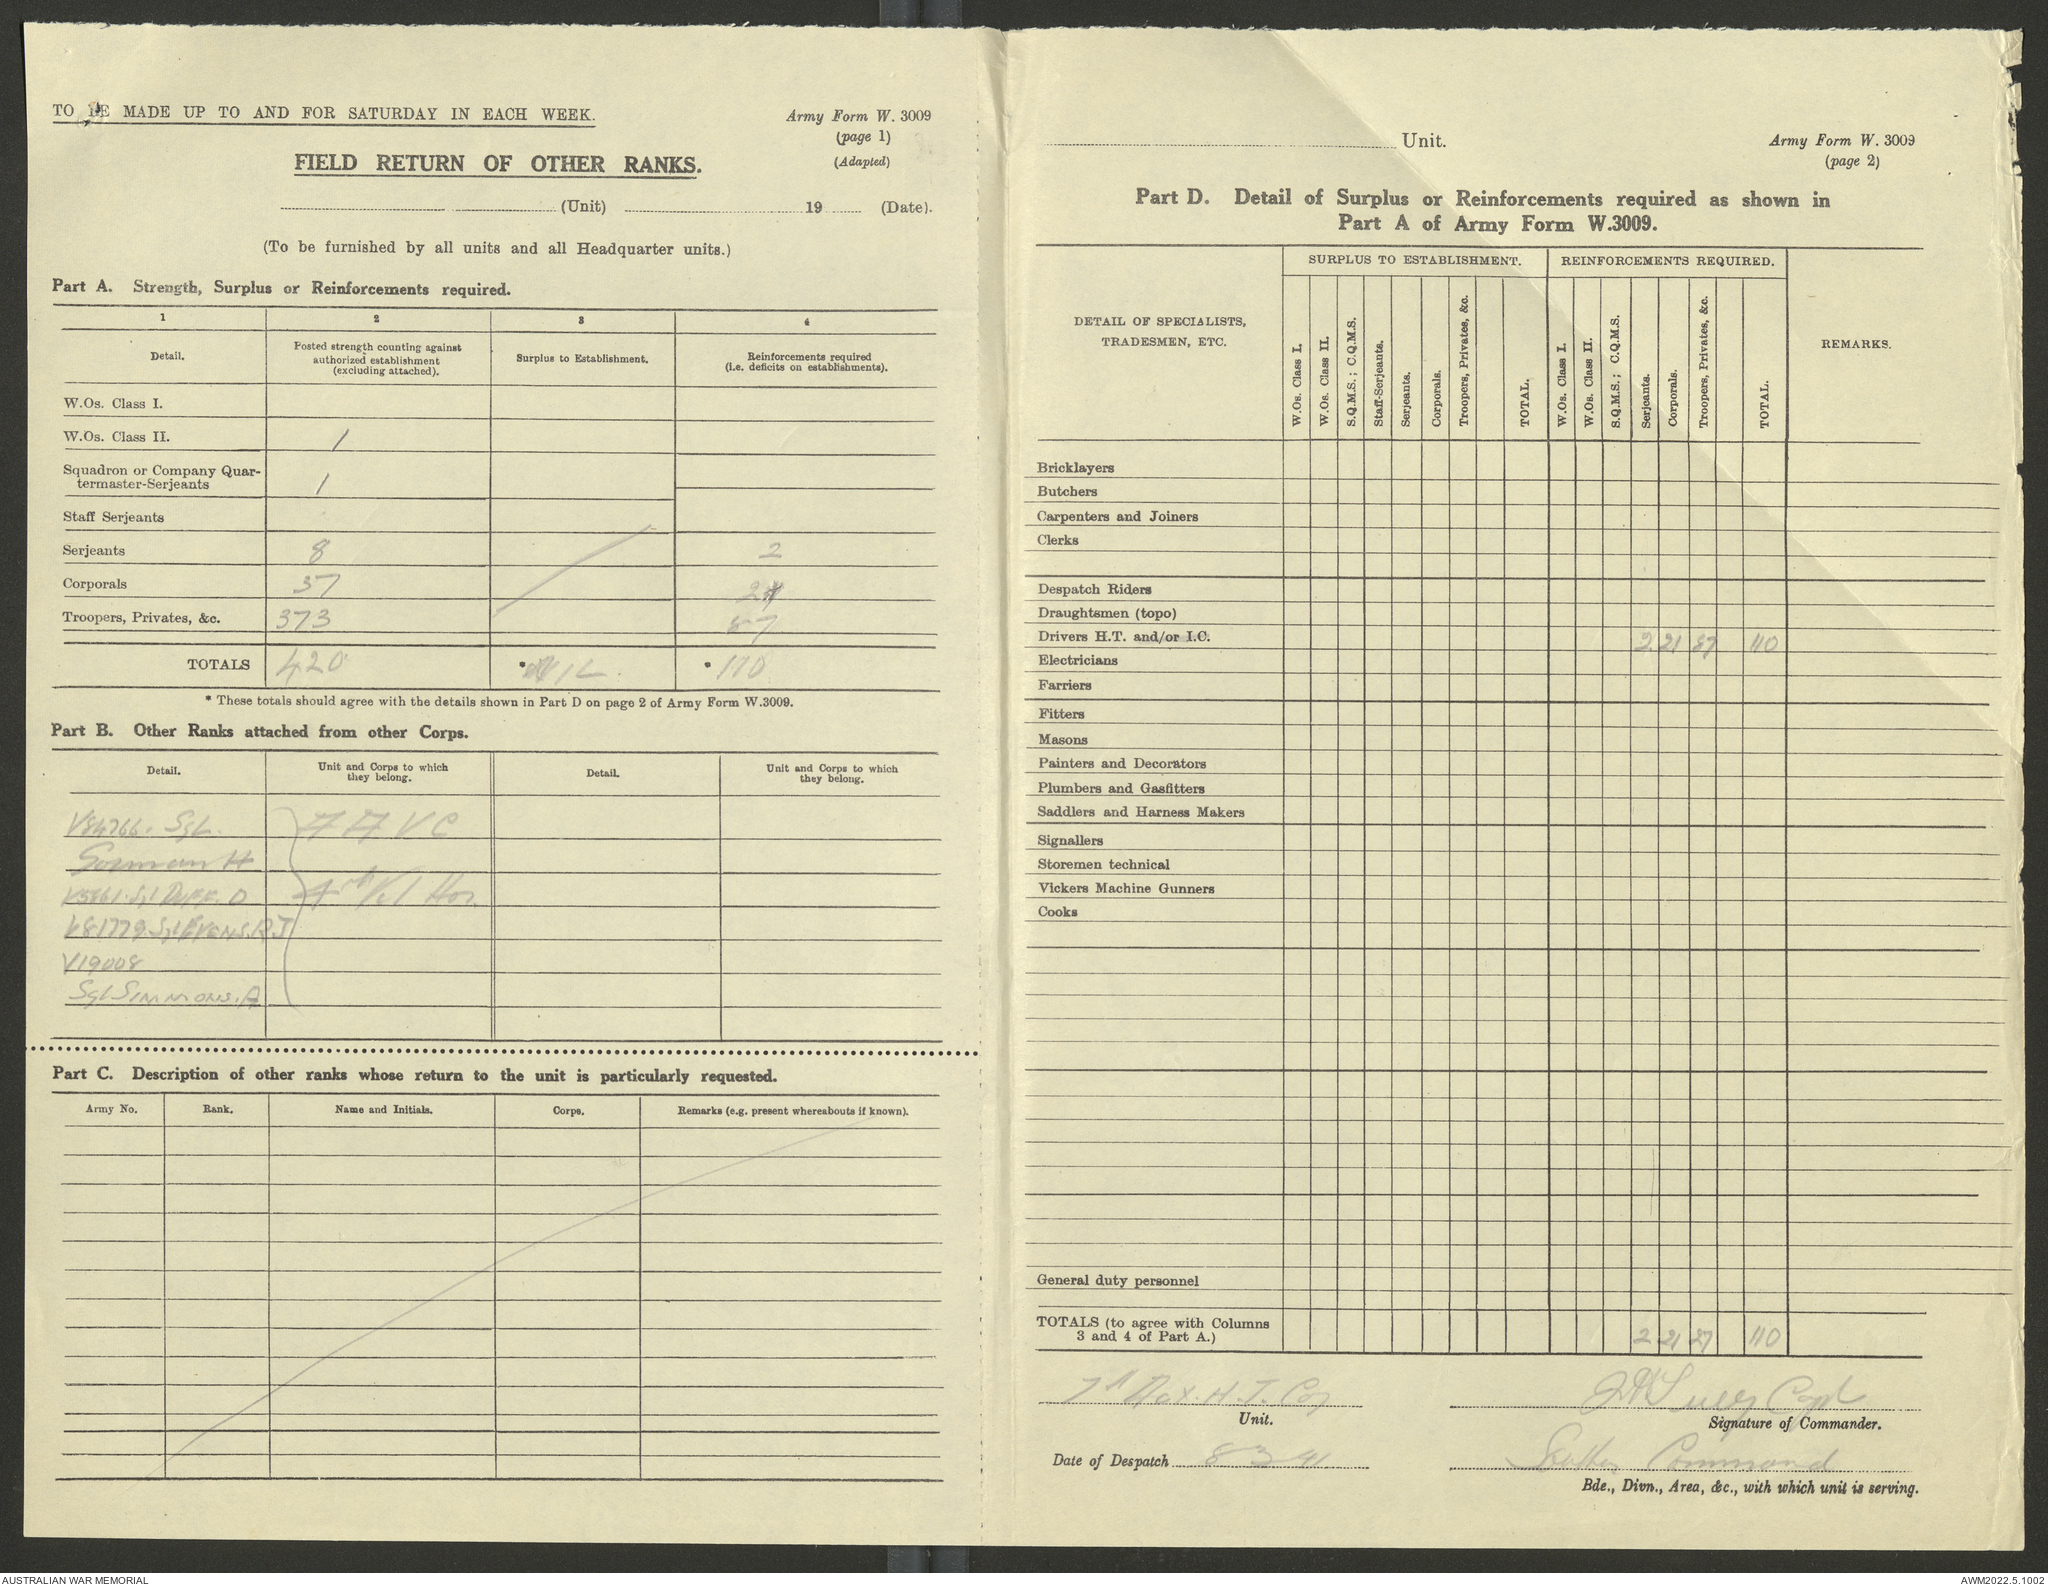 TO BE MADE UP TO AND FOR SATURDAY IN EACH WEEK.
Army Form W. 3009
(page 1)
(Adapted)
FIELD RETURN OF OTHER RANKS.
(Unit) 19 (Date).
(To be furnished by all units and all Headquarter units.)
Part A. Strength, Surplus or Reinforcements required.
1 2 3 4
Detail. Posted strength counting against authorized establishment (excluding attached). Surplus to Establishment. Reinforcements required (i.e. deficits on establishments).
W.Os. Class I.
W.Os. Class II. 1
Squadron or Company Quar-
termaster-Serjeants 1
Staff Serjeants
Serjeants 8 2
Corporals 37 21
Troopers, Privates, &c. 373 87
TOTALS 420 * NIL. * 110
* These totals should agree with the details shown in Part D on page 2 of Army Form W.3009.
Part B. Other Ranks attached from other Corps.
Detail. Unit and Corps to which they belong. Detail. Unit and Corps to which they belong.
V84766. Sgt. A A V C
Gorman H
Sgt Duff. D
V81779. Sgt Evans. R. J
V19008
Sgt Simmons. A
Part C. Description of other ranks whose return to the unit is particularly requested.
Army No. Rank. Name and Initials. Corps. Remarks (e.g. present whereabouts if known).
Unit.
Army Form W. 3009
(page 2)
Part D. Detail of Surplus or Reinforcements required as shown in
Part A of Army Form W.3009.
DETAIL OF SPECIALISTS, TRADESMEN, ETC.
SURPLUS TO ESTABLISHMENT. REINFORCEMENTS REQUIRED.
W.Os. Class I. W.Os. Class II. S.Q.M.S.; C.Q.M.S. Staff-Serjeants. Serjeants. Corporals. Troopers, Privates, &c. TOTAL. W.Os. Class I. W.Os. Class II. S.Q.M.S.; C.Q.M.S. Serjeants. Corporals. Troopers, Privates, &c. TOTAL.
REMARKS.
Bricklayers
Butchers
Carpenters and Joiners
Clerks
Despatch Riders
Draughtsmen (topo)
Drivers H.T. and/or I.C. 2 21 87 110
Electricians
Farriers
Fitters
Masons
Painters and Decorators
Plumbers and Gasfitters
Saddlers and Harness Makers
Signallers
Storemen technical
Vickers Machine Gunners
Cooks
General duty personnel
TOTALS (to agree with Columns
3 and 4 of Part A.) 2 21 87 110
Aux. H. T. Coy
Unit.
Capt
Signature of Commander.
Date of Despatch 8 3 41
Southern Command
Bde., Divn., Area, &c., with which unit is serving.
AUSTRALIAN WAR MEMORIAL
AWM2022.5.1002